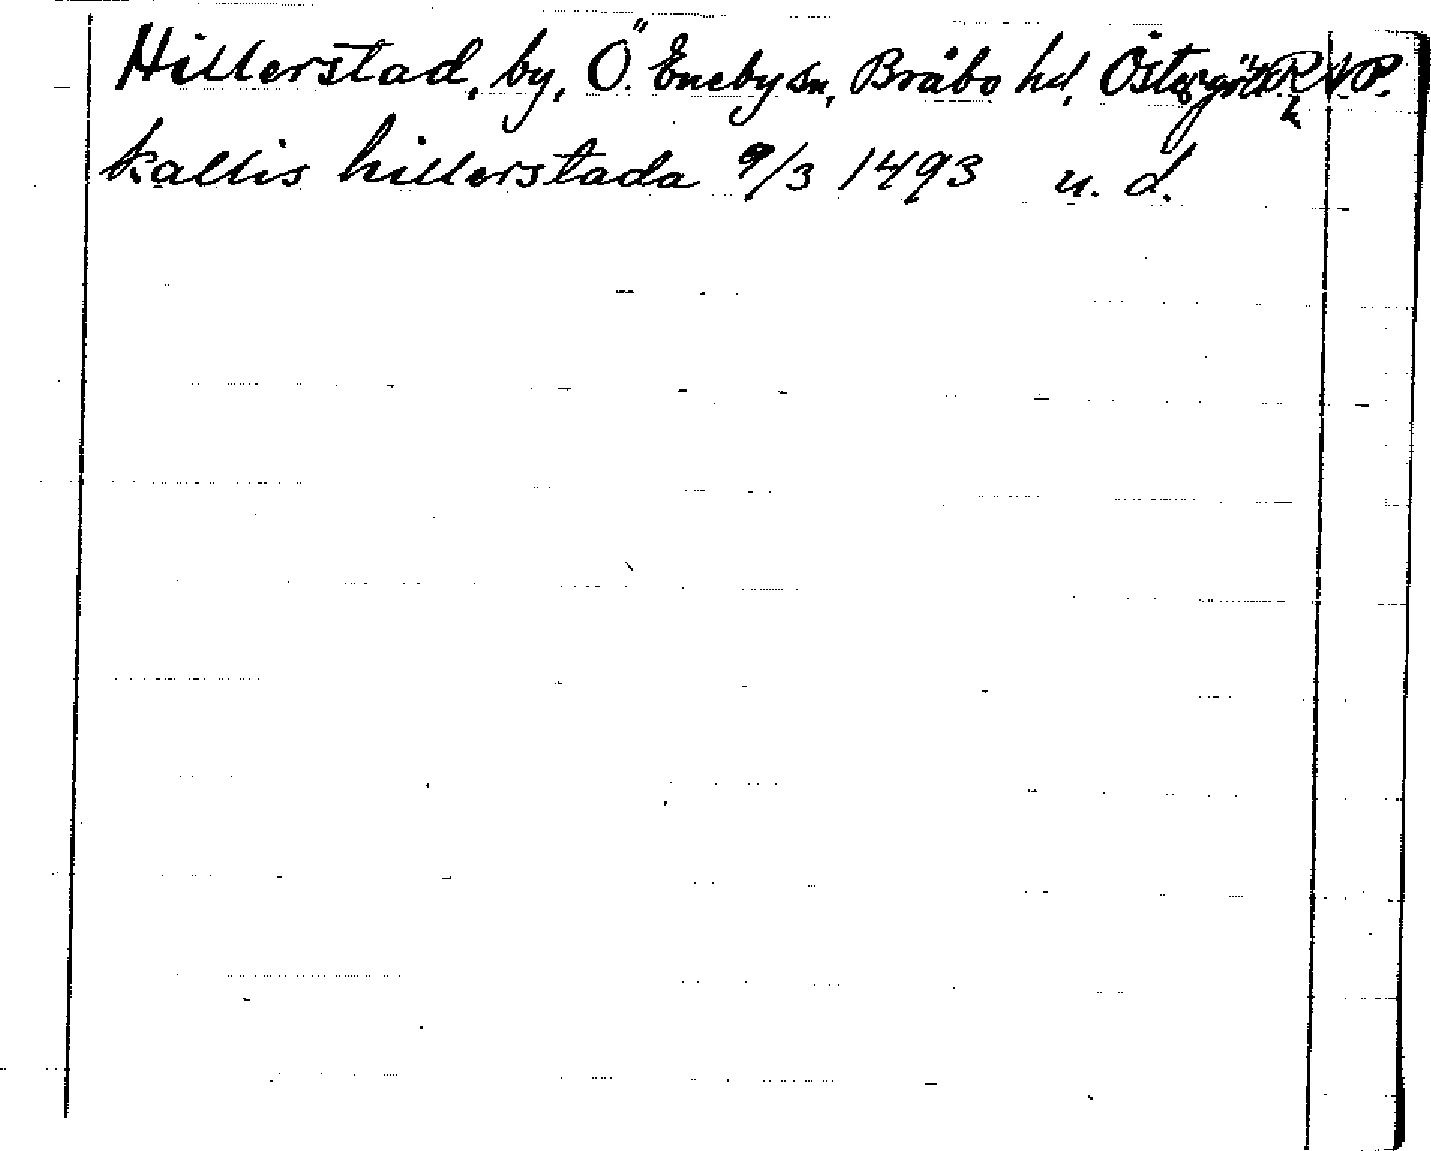 Hillerstad, by, Ö. Eneby sn, Bråbo hd, Östergötl
kallis hillerstada 9/3 1493 u. d.